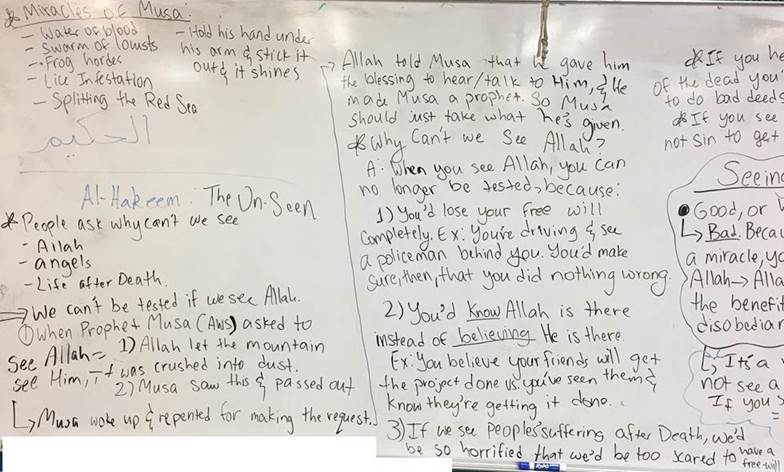 * Miracles of Musa:
- Water of blood
- Swarm of lousts
- Frog hordes
- Lice Infestation
- Splitting the Red Sea
- Hold his hand under
his arm & stick it
out & it shines
الحكيم
Al-Hakeem: The Un-Seen
* People ask why can't we see
- Allah
- angels
- Life after Death.
⇒ We can't be tested if we see Allah.
① When Prophet Musa (AWS) asked to
see Allah= 1) Allah let the mountain
see Him, it was crushed into dust.
2) Musa saw this & passed out
↳ Musa woke up & repented for making the request.
→ Allah told Musa that he gave him
the blessing to hear/talk to Him, & He
made Musa a prophet. So Musa
should just take what he's given.
* Why Can't we See Allah?
A: When you see Allah, you can
no longer be tested, because:
1) You'd lose your free will
completely. Ex: You're driving & see
a policeman behind you. You'd make
sure, then, that you did nothing wrong.
2) You'd Know Allah is there
instead of believing He is there.
Ex: You believe your friends will get
the project done vs. you've seen them &
know they're getting it done.
3) If we see peoples' suffering after Death, we'd
be so horrified that we'd be too scared to have a
free will
* If you he
of the dead you
to do bad deeds
* If you see
not sin to get
Seeing
• Good, or
↳ Bad. Becau
a miracle, yo
Allah → Alla
the benefit
disobedian
↳ It's a
not see a
If you s